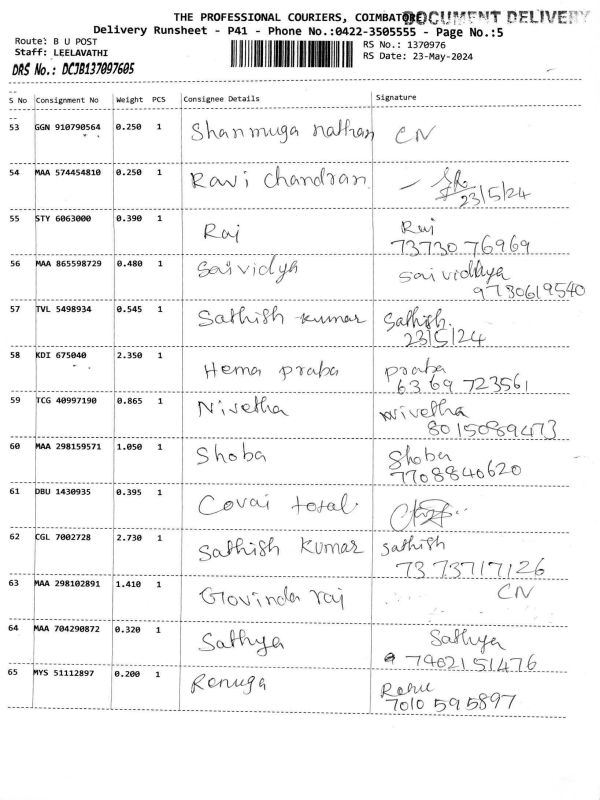 THE PROFESSIONAL COURIERS, COIMBATORE
DOCUMENT DELIVERY
Delivery Runsheet - P41 - Phone No.:0422-3505555 - Page No.:5
Route: B U POST
Staff: LEELAVATHI
DRS No.: DCJB137097605
RS No.: 1370976
RS Date: 23-May-2024
S No Consignment No Weight PCS Consignee Details Signature
53 GGN 910790564 0.250 1 Shanmuga nathan CN
54 MAA 574454810 0.250 1 Ravi Chandran
23/5/24
55 STY 6063000 0.390 1 Raj Raj
73730 76969
56 MAA 865598729 0.480 1 Saividya Saividhya
9730619540
57 TVL 5498934 0.545 1 Sathish kumar Sathish.
23/5/24
58 KDI 675040 2.350 1 Hema praba praba
6369 723561
59 TCG 40997190 0.865 1 Nivetha Nivetha
8015089473
60 MAA 298159571 1.050 1 Shoba Shoba
7708840620
61 DBU 1430935 0.395 1 Covai total
62 CGL 7002728 2.730 1 Sathish Kumar Sathish
7373717126
63 MAA 298102891 1.410 1 Govinda raj CN
64 MAA 704290872 0.320 1 Sathya Sathya
7402151476
65 MYS 51112897 0.200 1 Renuga Renu
7010 595897